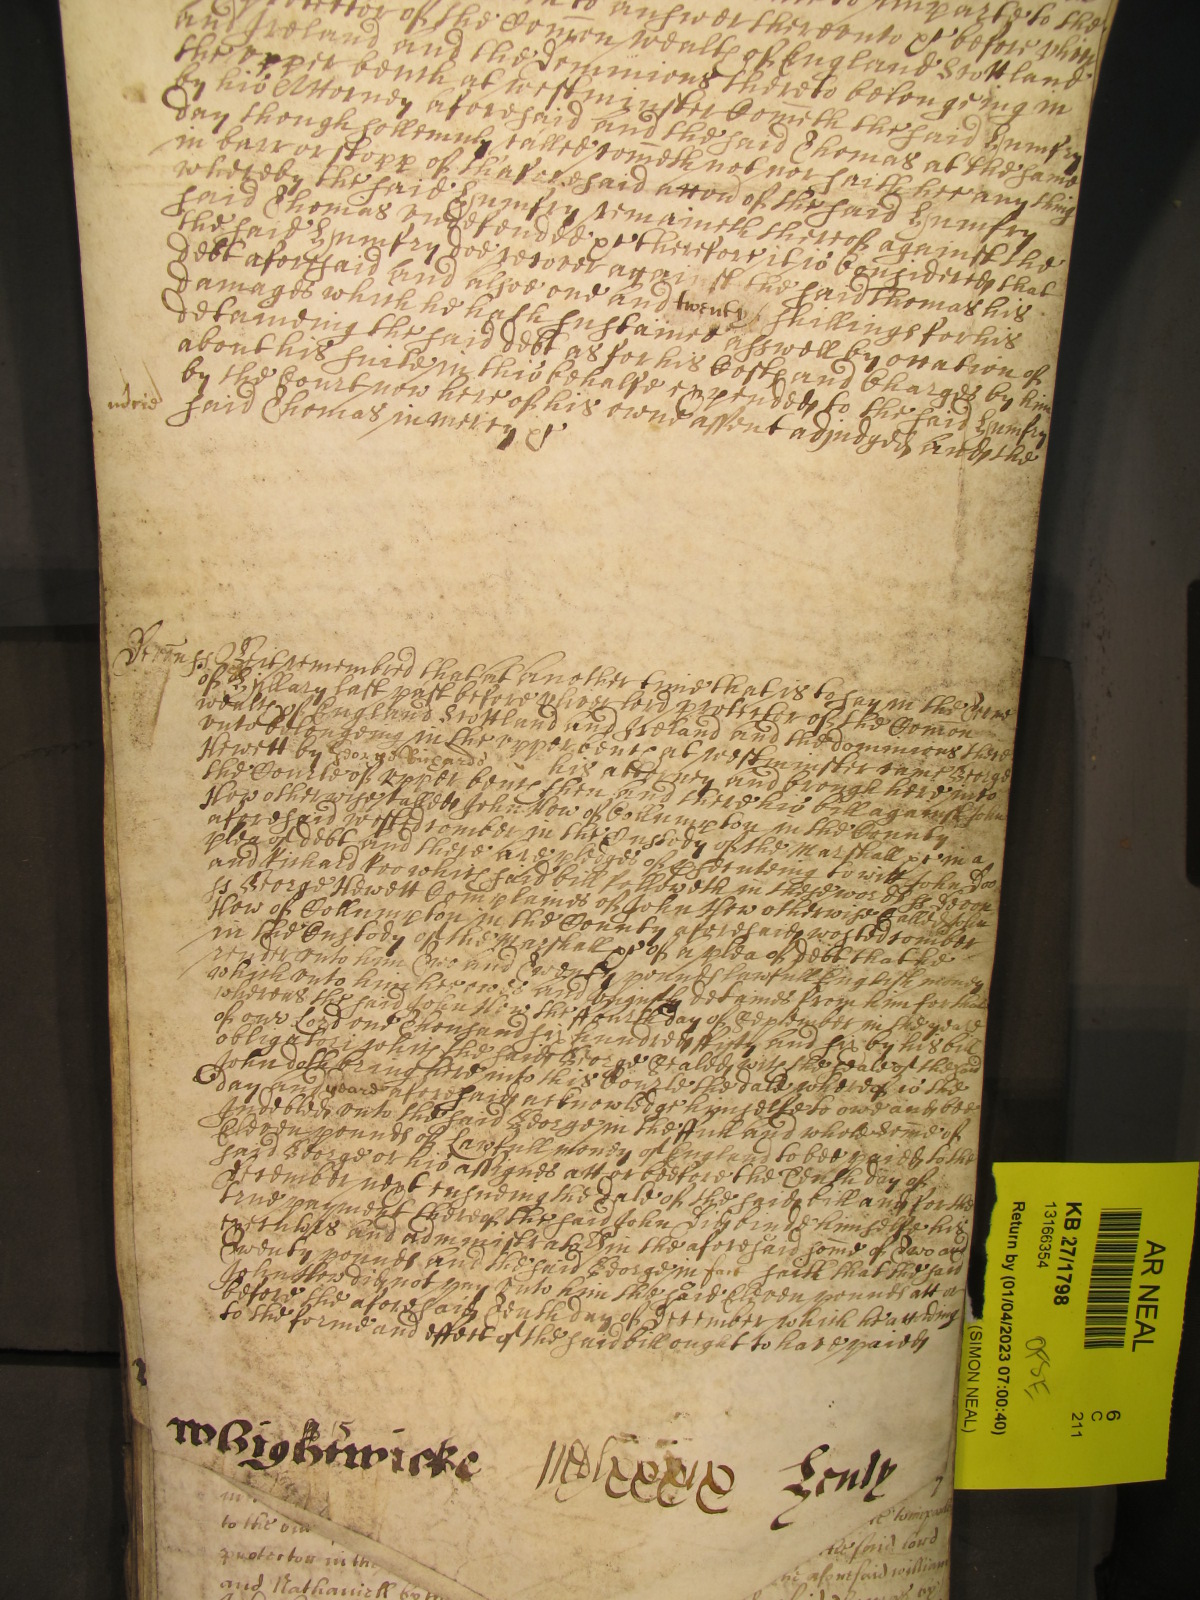 Protector of the Com̄on wealth of England Scottland
and Ireland and the dominions thereto belongeing in
the upper bench at westminster Cometh the said Humfry
by his Attorney aforesaid and the said Thomas at the same
day though sollemnly called cometh not nor saith hee any thing
in barr or stopp of thaforesaid accon̄ of the said Humfry
whereby the said Humfry remaineth thereof against the
said Thomas undefended &c therefore it is Considered that
the said Humfry doe recover against the said Thomas his
debt aforesaid and alsoe one and twenty shillings for his
damages which he hath sustained aswell by occation of
detaineing the said debt as for his Costs and Charges by him
about his suite in this behalfe expended to the said Humfry
by the Court now here of his owne assent adjudged And the
said Thomas in mercy &c
Devon ss Bee it remembred that at Another time that is to say in the Terme
of St Hillary last past before Oliver lord protector of the Com̄on
wealth of England Scottland and Ireland and the dominions there
unto belongeing in the upper bench at westminster came George
Hewett by George his attorney and brough here into
the Courte of upper bench then and there his bill against John
How otherwise called John How of Collumpton in the County
aforesaid Wostedcomber in the Custody of the Marshall &c in a
plea of debt and there are pledges of prosecuteing to witt John Doo
and Richard Roo which said bill followeth in these words ss Devon
ss George Hewett Complaines of John How otherwise Called John
How of Collumpton in the County aforesaid wostedcomber
in the Custody of the Marshall &c of a plea of debt that he
render unto him Two and Twenty pounds lawfull English money
which unto him he owes and uniustly detaines from him for that
whereas the said John How the fourth day of September in the yeare
of our Lord one Thousand six hundred fifty and six by his bill
obligatory which the said George Sealed with the seale of the said
John doth bring here into this Courte the date whereof is the
day and yeare aforesaid acknowledge himselfe to owe and bee
Indebted unto the said George in the full and whole some of
Eleven pounds of Lawfull money of England to bee paied to the
said George or his assignes att or beefore the Tenth day of
December next ensueing the date of the said bill and for the
true payment thereof the said John did binde himselfe his
executors and administrators in the aforesaid some of Two and
Twenty pounds And the said George in fact saith that the said
John How did not pay unto him the said Eleven pounds att or
before the aforesaid Tenth day of December which he according
to the forme and effect of the said bill ought to have paied
Henly
to the
protector in the
and Nathaniell
the said lord
the aforesaid william
AR NEAL
6
C
211
KB 27/1798
13166354
Return by (01/04/2023 07:00:40)
(SIMON NEAL)